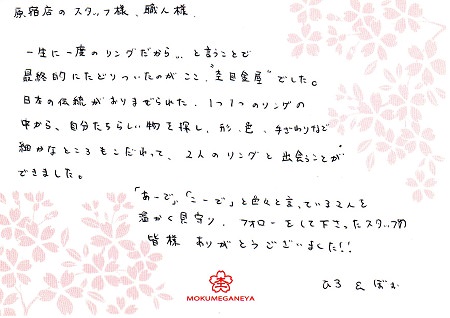 原宿店のスタッフ様、職人様
一生に一度のリングだから…と言うことで
最終的にたどりついたのがここ、"杢目金屋"でした。
日本の伝統がおりまぜられた、1つ1つのリングの
中から、自分たちらしい物を探し、形、色、手ざわりなど
細かなところもこだわって、2人のリングと出会うことが
できました。
「あーで」「こーで」と色々と言っている2人を
温かく見守り、フォローをして下さったスタッフの
皆様 ありがとうございました!!
MOKUMEGANEYA
ひろ &